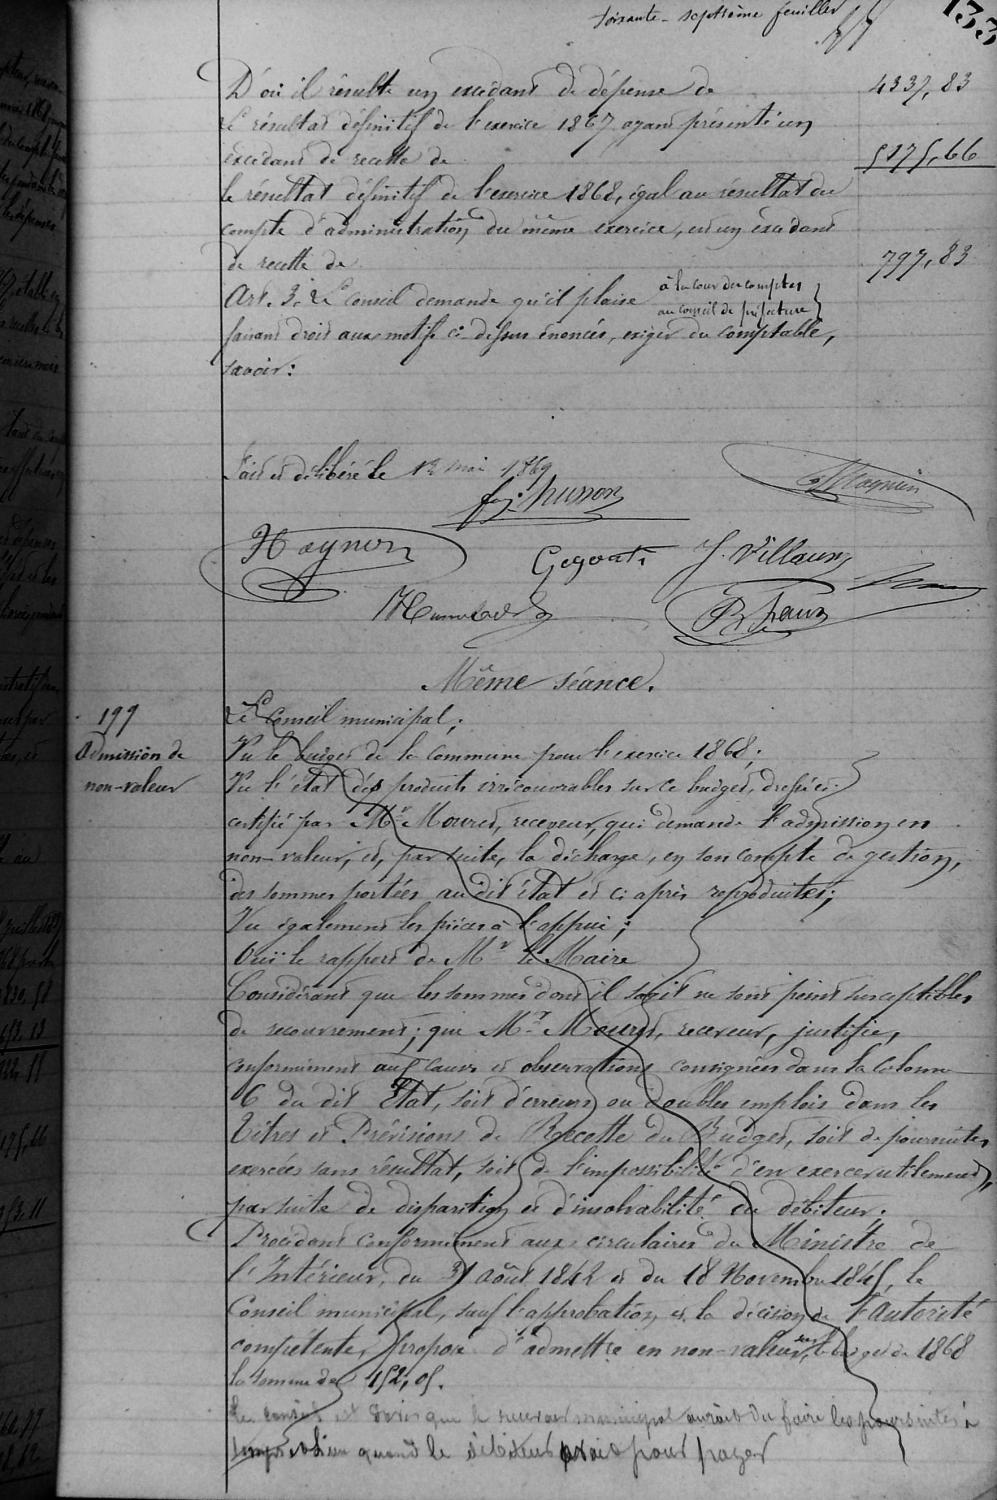 soixante-septième feuillet
133
D'où il résulte un excédant de dépense de 4337,83
Le résultat définitif de l'exercice 1867 ayant présenté un
excédant de recette de 5175,66
le résultat définitif de l'exercice 1868, égal au résultat du
compte d'administration du même exercice, est un excédant
de recette de 797,83
Art. 3. Le Conseil demande qu'il plaise à la cour des comptes
au conseil de préfecture
faisant droit aux motifs ci dessus énoncés, exiger du comptable,
savoir:
Fait et délibéré le 12 mai 1869
Husson
Magnien
Haynon
J. Villaum
Même séance.
199
Admission de
non-valeur
Le Conseil municipal;
Vu le budget de la commune pour l'exercice 1868;
Vu l'état des produits irrécouvrables sur ce budget, dressé et
certifié par Mr Mouret, receveur, qui demande l'admission en
non-valeur, et, par suite, la décharge, en son compte de gestion,
des sommes portées au dit état et ci après reproduites;
Vu également les pièces à l'appui;
Ouï le rapport de Mr le Maire
Considérant que les sommes dont il s'agit ne sont point susceptibles
de recouvrement; que Mr Mouret, receveur, justifie,
conformément aux causes et observations consignées dans la colonne
6 du dit Etat, soit d'erreurs ou doubles emplois dans les
Titres et Prévisions de Recette du Budget, soit de poursuites
exercées sans résultat, soit de l'impossibilité d'en exercer utilement,
par suite de disparition et d'insolvabilité du débiteur.
Procédant conformément aux circulaires du Ministre de
l'Intérieur, du 31 Août 1842 et du 18 Novembre 1845, le
Conseil municipal, sauf l'approbation et la décision de l'autorité
compétente, propose d'admettre en non-valeur, sur le budget de 1868
la somme de 152,05.
Le conseil est d'avis que le receveur municipal aurait du faire les poursuites à
temps et lieu quand le débiteur avait pour payer